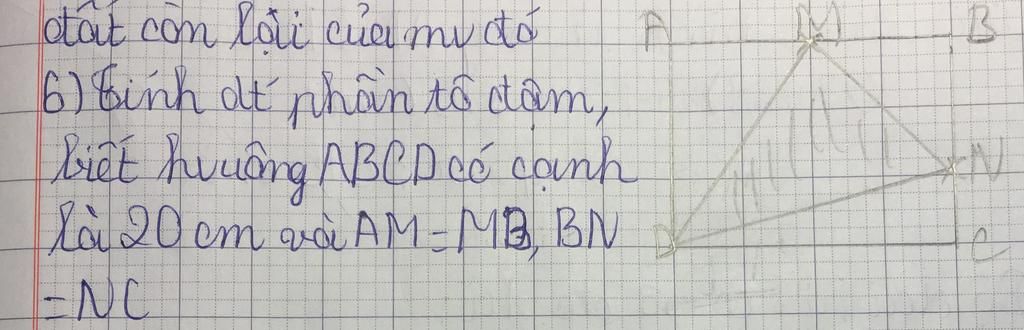 đất còn lại của mv đó
A M B
6) Tính dt phần tô đậm,
biết hvuông ABCD có cạnh
N
là 20 cm và AM = MB, BN
D C
= NC